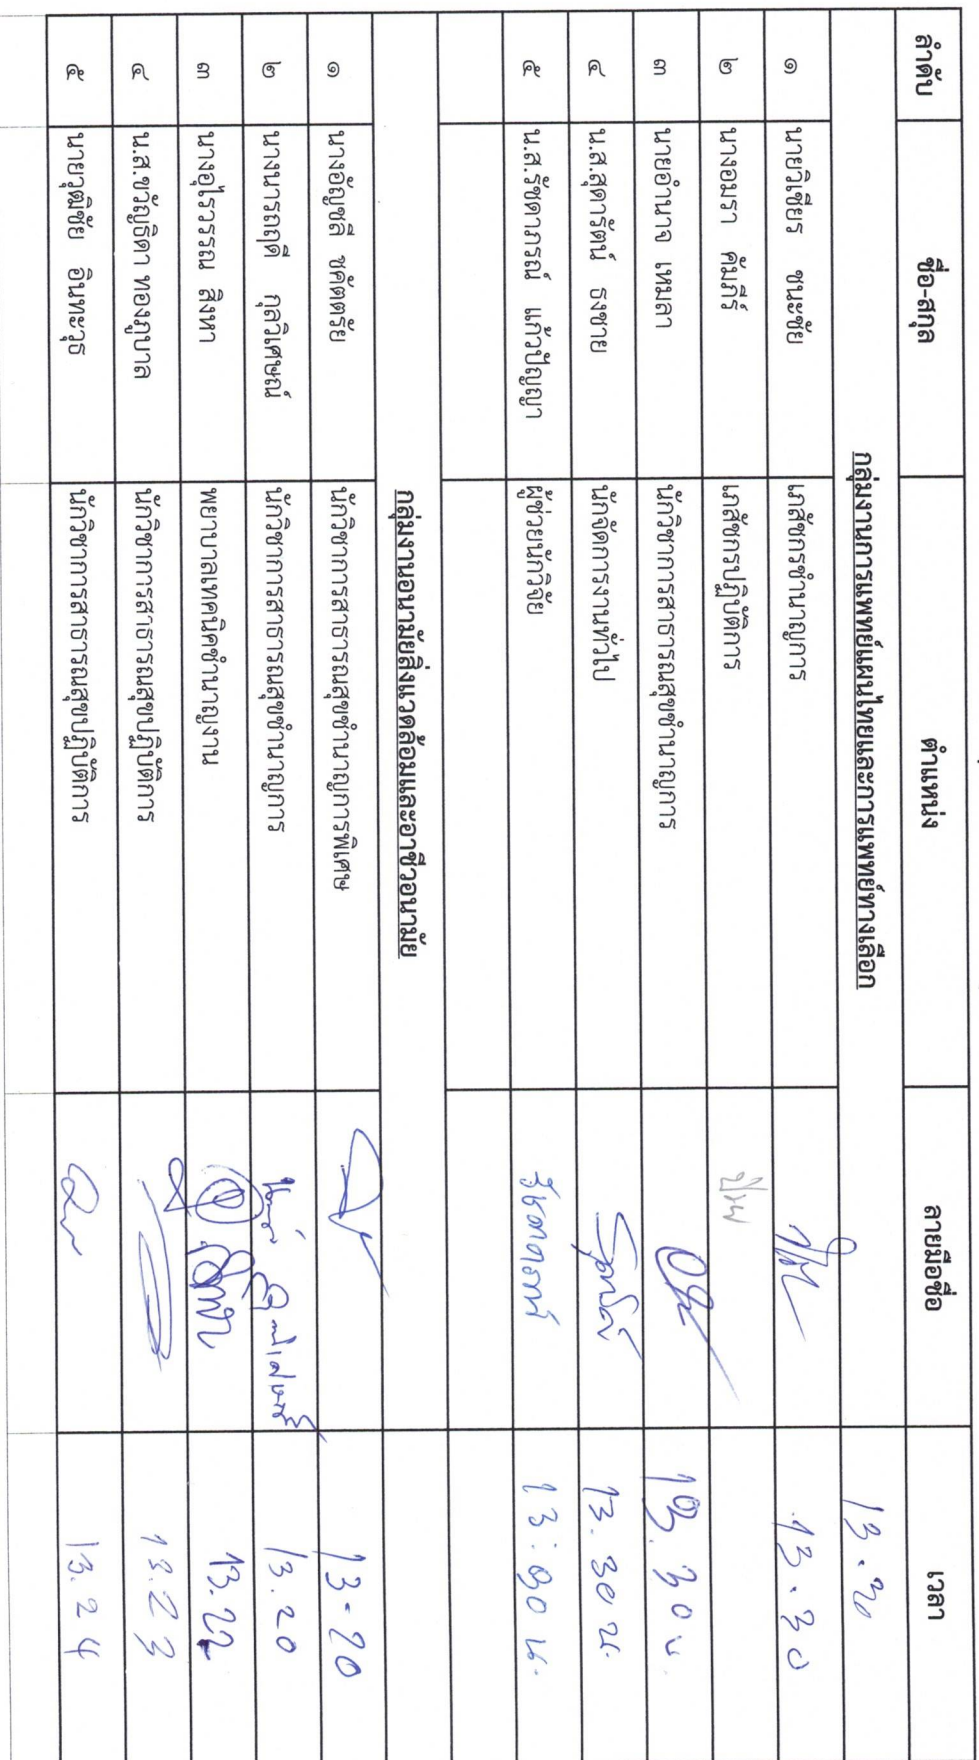 ลำดับ ชื่อ-สกุล ตำแหน่ง ลายมือชื่อ เวลา
กลุ่มงานการแพทย์แผนไทยและการแพทย์ทางเลือก 13.30
๑ นายวิเชียร ชนะชัย เภสัชกรชำนาญการ 13.30
๒ นางอมรา คัมภีร์ เภสัชกรปฏิบัติการ
๓ นายอำนาจ เหมลา นักวิชาการสาธารณสุขชำนาญการ 13.30 น.
๔ น.ส.สุดารัตน์ ธงชาย นักจัดการงานทั่วไป สุดารัตน์ 13.30 น.
๕ น.ส.รัชดาภรณ์ แก้วปัญญา ผู้ช่วยนักวิจัย รัชดาภรณ์ 13:30 น.
กลุ่มงานอนามัยสิ่งแวดล้อมและอาชีวอนามัย
๑ นางอัญชลี ชคัตตรัย นักวิชาการสาธารณสุขชำนาญการพิเศษ 13.20
๒ นางนารถฤดี กุลวิเศษณ์ นักวิชาการสาธารณสุขชำนาญการ 13.20
๓ นางอุไรวรรณ สิงหา พยาบาลเทคนิคชำนาญงาน 13.22
๔ น.ส.ขวัญธิดา ทองภูบาล นักวิชาการสาธารณสุขปฏิบัติการ 13.23
๕ นายวุฒิชัย อินทะวุธ นักวิชาการสาธารณสุขปฏิบัติการ 13.24